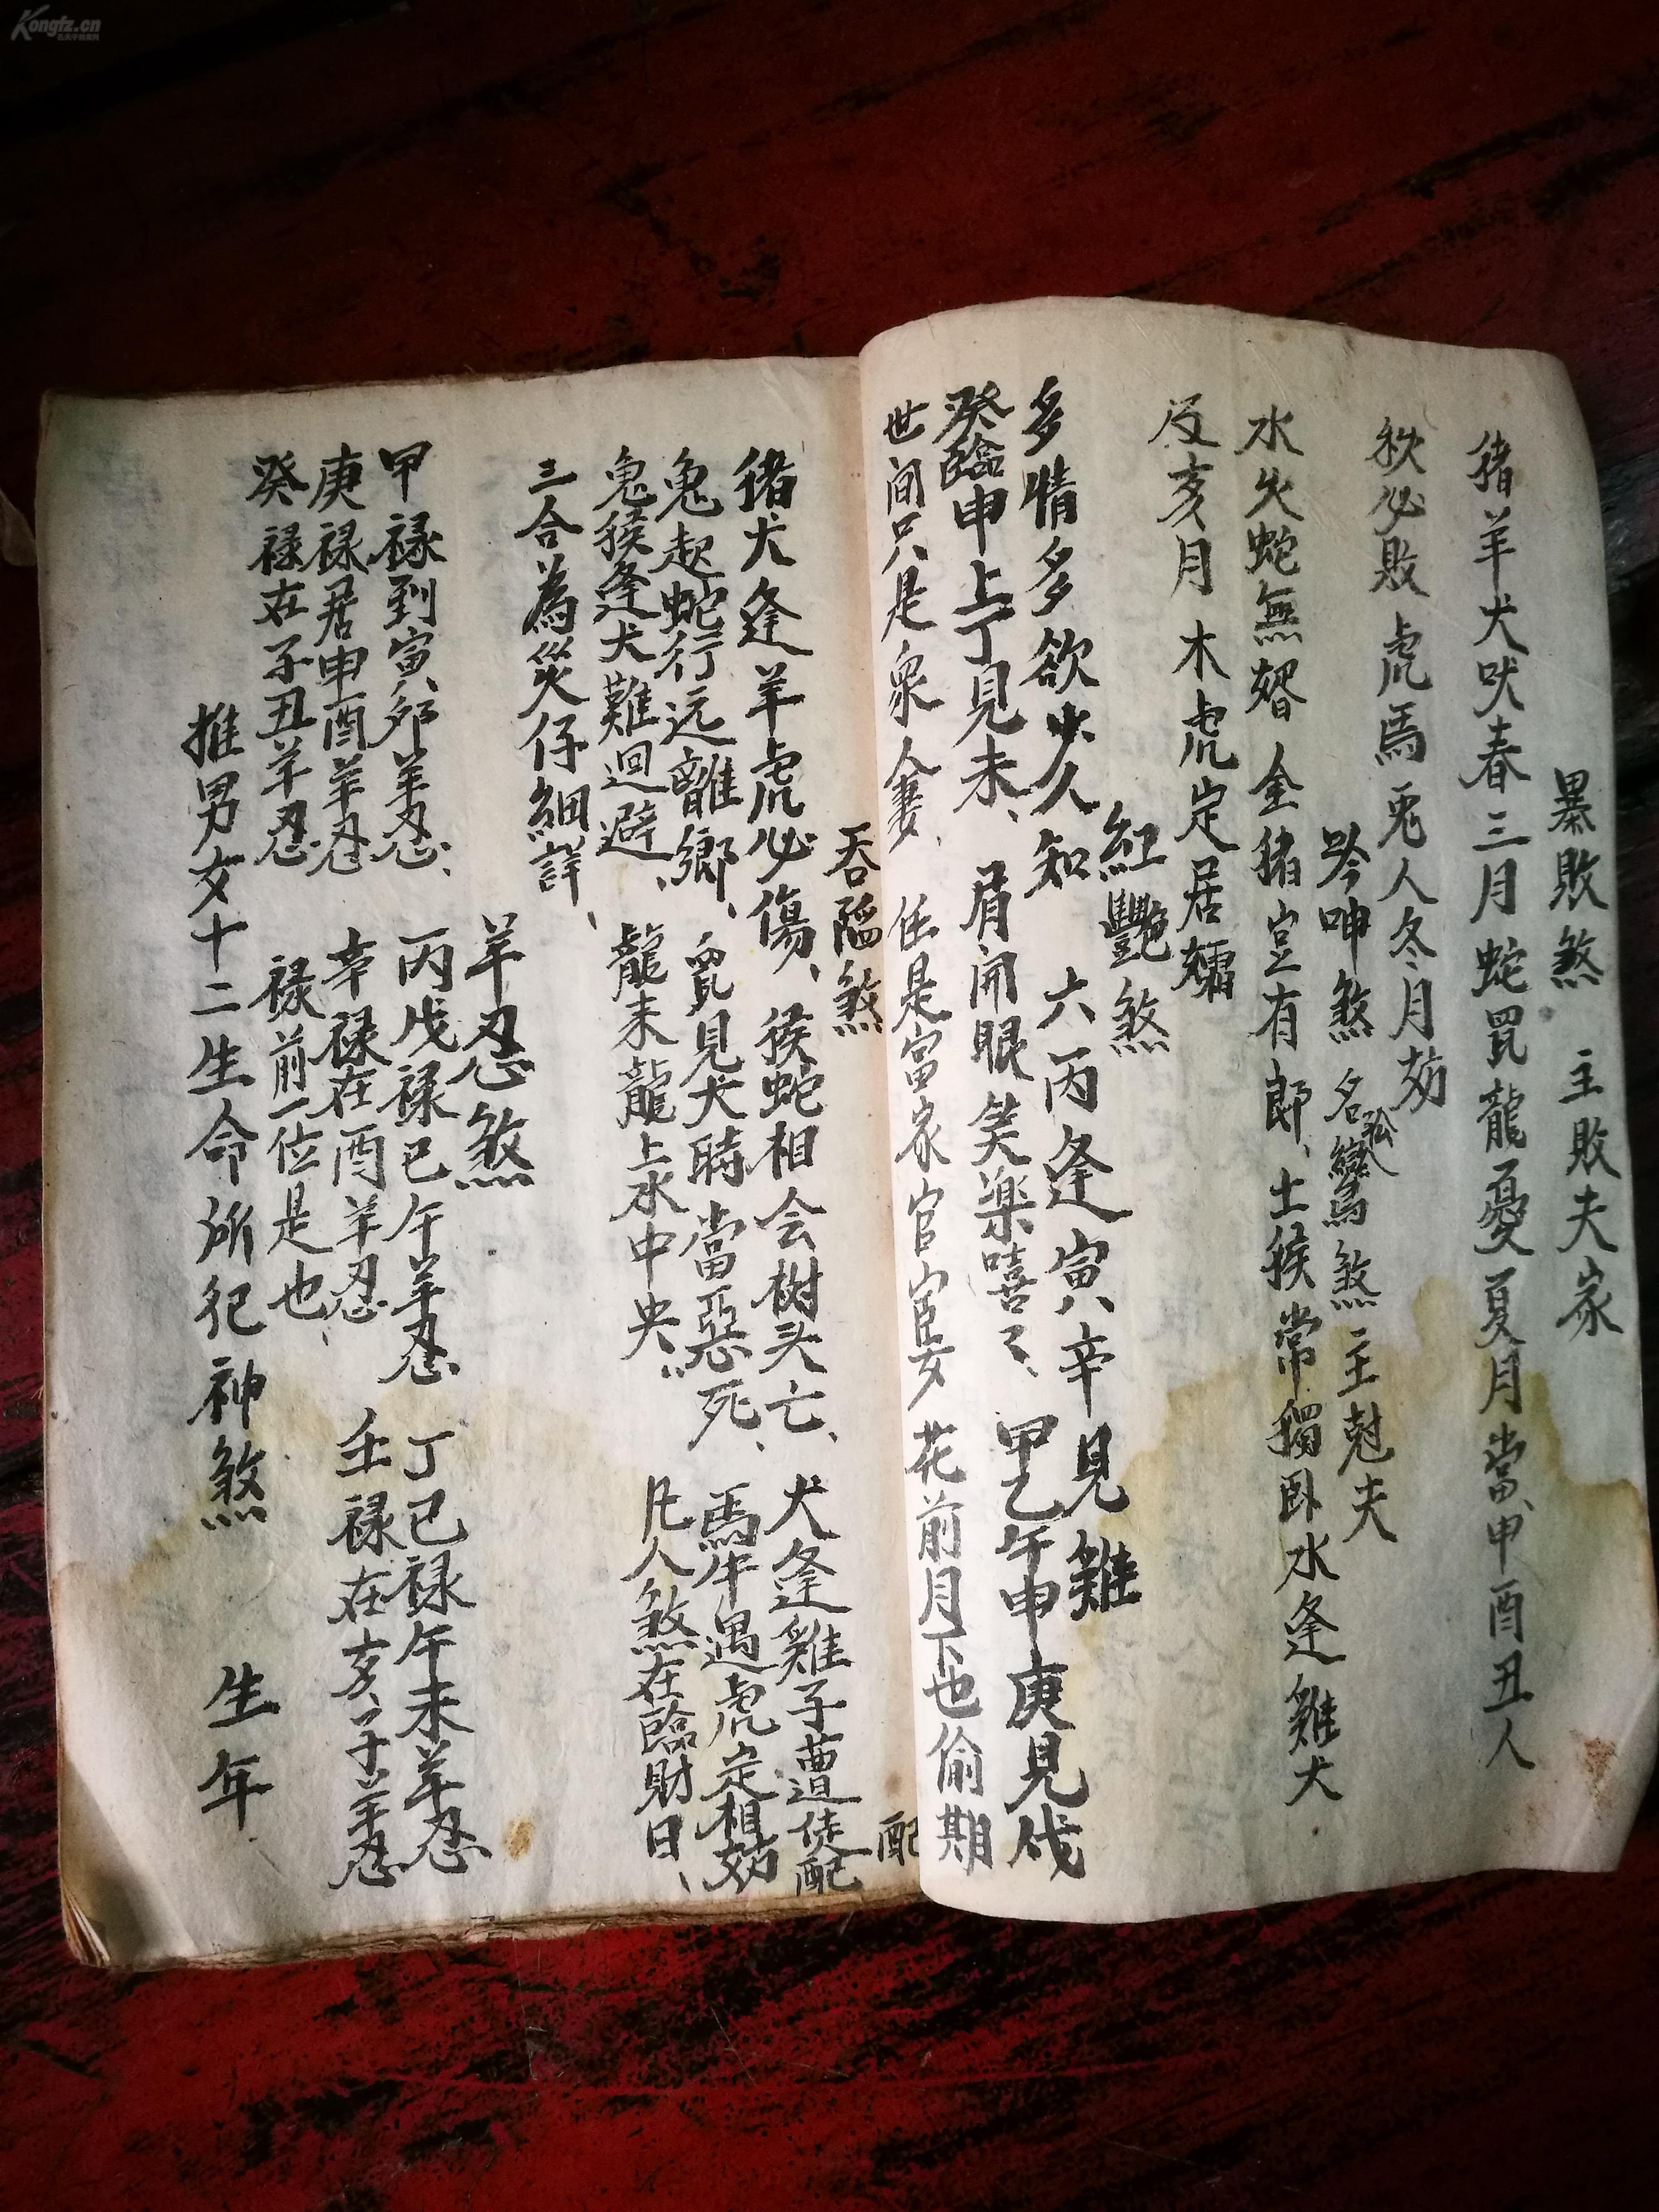 暴敗煞 主敗夫家
猪羊犬吠春三月 蛇鼠龍憂夏月當、申酉丑人
秋必敗 虎馬兎人冬月妨
呻煞 名孤鸞煞 主尅夫
水火蛇無婿 金猪豈有郎、土猴常獨卧 水逢雞犬
及亥月 木虎定居孀
紅艷煞
多情多欲少人知 六丙逢寅八辛見雞
癸臨申上丁見未、眉開眼笑樂嘻〻、甲乙午申庚見戌
世间只是衆人妻、任是富家官宦女 花前月下也偷期
吞陷煞
猪犬逢羊虎必傷、猴蛇相会樹头亡、犬逢雞子遭徒配
配
兔起蛇行远離鄉、鼠見犬時當惡死、馬牛遇虎定相妨
兔猴逢犬難迴避、龍来龍上水中央、凡人煞在臨財日、
三合為災仔細詳、
羊忍煞
甲禄到寅、卯羊忍、丙戊禄巳午羊忍 丁己禄午未羊忍
庚禄居申酉羊忍 辛禄在酉羊忍 壬禄在亥、子羊忍
癸禄在子丑羊忍 禄前一位是也、
推男女十二生命所犯神煞 生年
Kongfz.cn